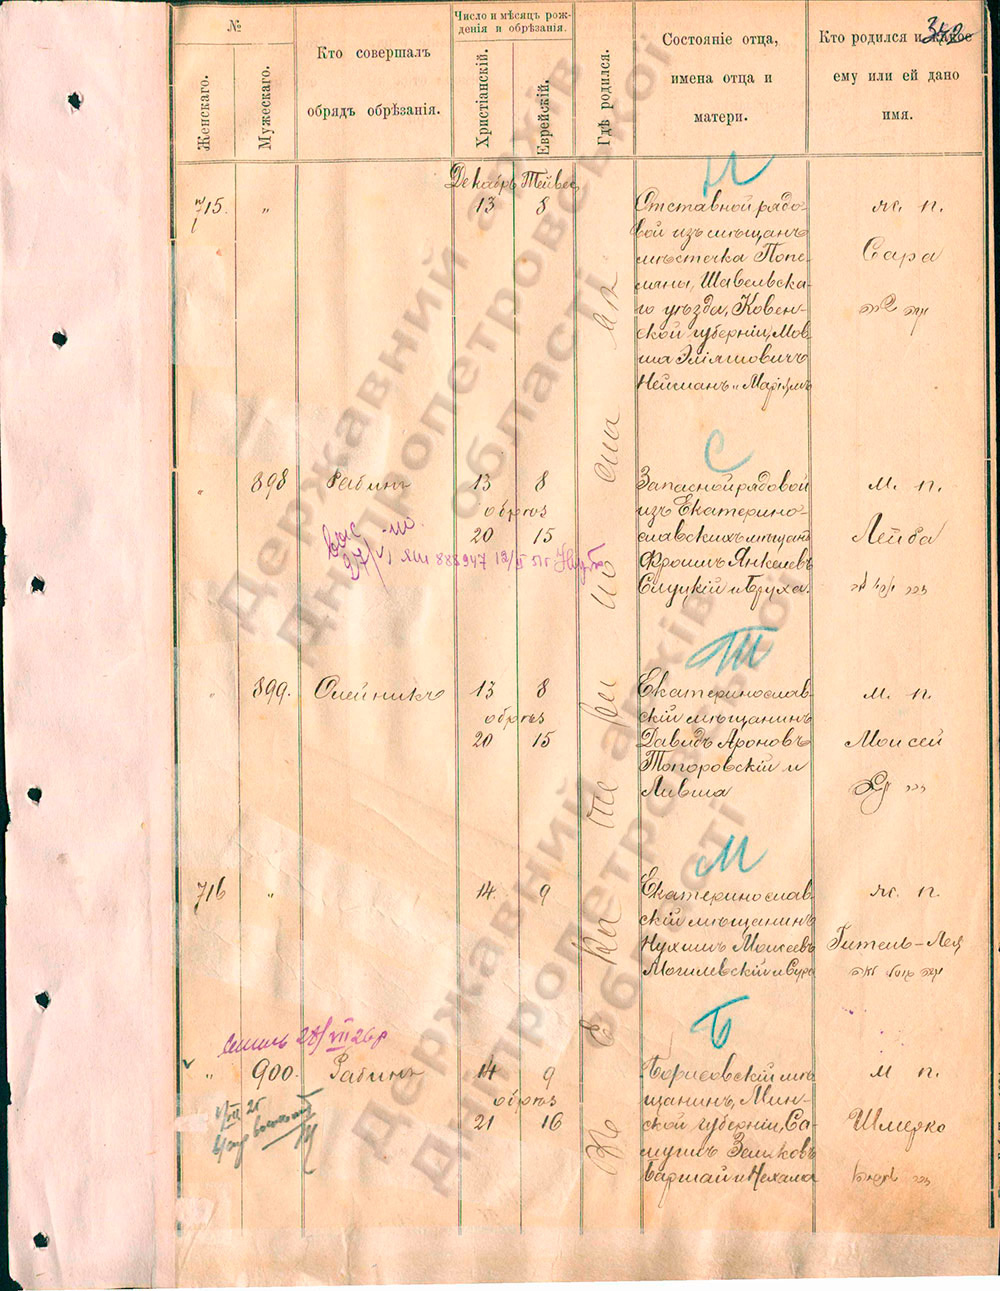 342
№
Женскаго.
Мужескаго.
Кто совершалъ
обрядъ обрѣзанія.
Число и мѣсяцъ рож-
денія и обрѣзанія.
Христіанскій.
Еврейскій.
Гдѣ родился.
Состояніе отца,
имена отца и
матери.
Кто родился и какое
ему или ей дано
имя.
Декабрь Тейвес
715. „ 13 8
Н
Отставной рядо-
вой изъ мѣщанъ
мѣстечка Попе-
ляны, Шавельска-
го уѣзда, Ковен-
ской губерніи, Мов-
ша Эліяшовичъ
Нейманъ и Маріямъ
ж. п.
Сара
„ 898 Рабинъ 13 8
обрѣз
20 15
С
Запасной рядовой
изъ Екатерино-
славскихъ мѣщанъ
Фроимъ Янкелевъ
Слуцкій и Бруха.
м. п.
Лейба
„ 899. Олейникъ 13 8
обрѣз
20 15
Т
Екатеринослав-
скій мѣщанинъ
Давидъ Ароновъ
Топоровскій и
Ливша
м. п.
Моисей
716 „ 14. 9
М
Екатеринослав-
скій мѣщанинъ
Нухимъ Моисеевъ
Могилевскій и Сура
ж. п.
Гитель-Лея
„ 900. Рабинъ 14 9
обрѣз
21 16
Б
Борисовскій мѣ-
щанинъ, Мин-
ской губерніи, Са-
муилъ Зелиховъ
Варшай и Нехама
м п.
Шмерко
Державний архів
Дніпропетровської
області
Державний архів
Дніпропетровської
області